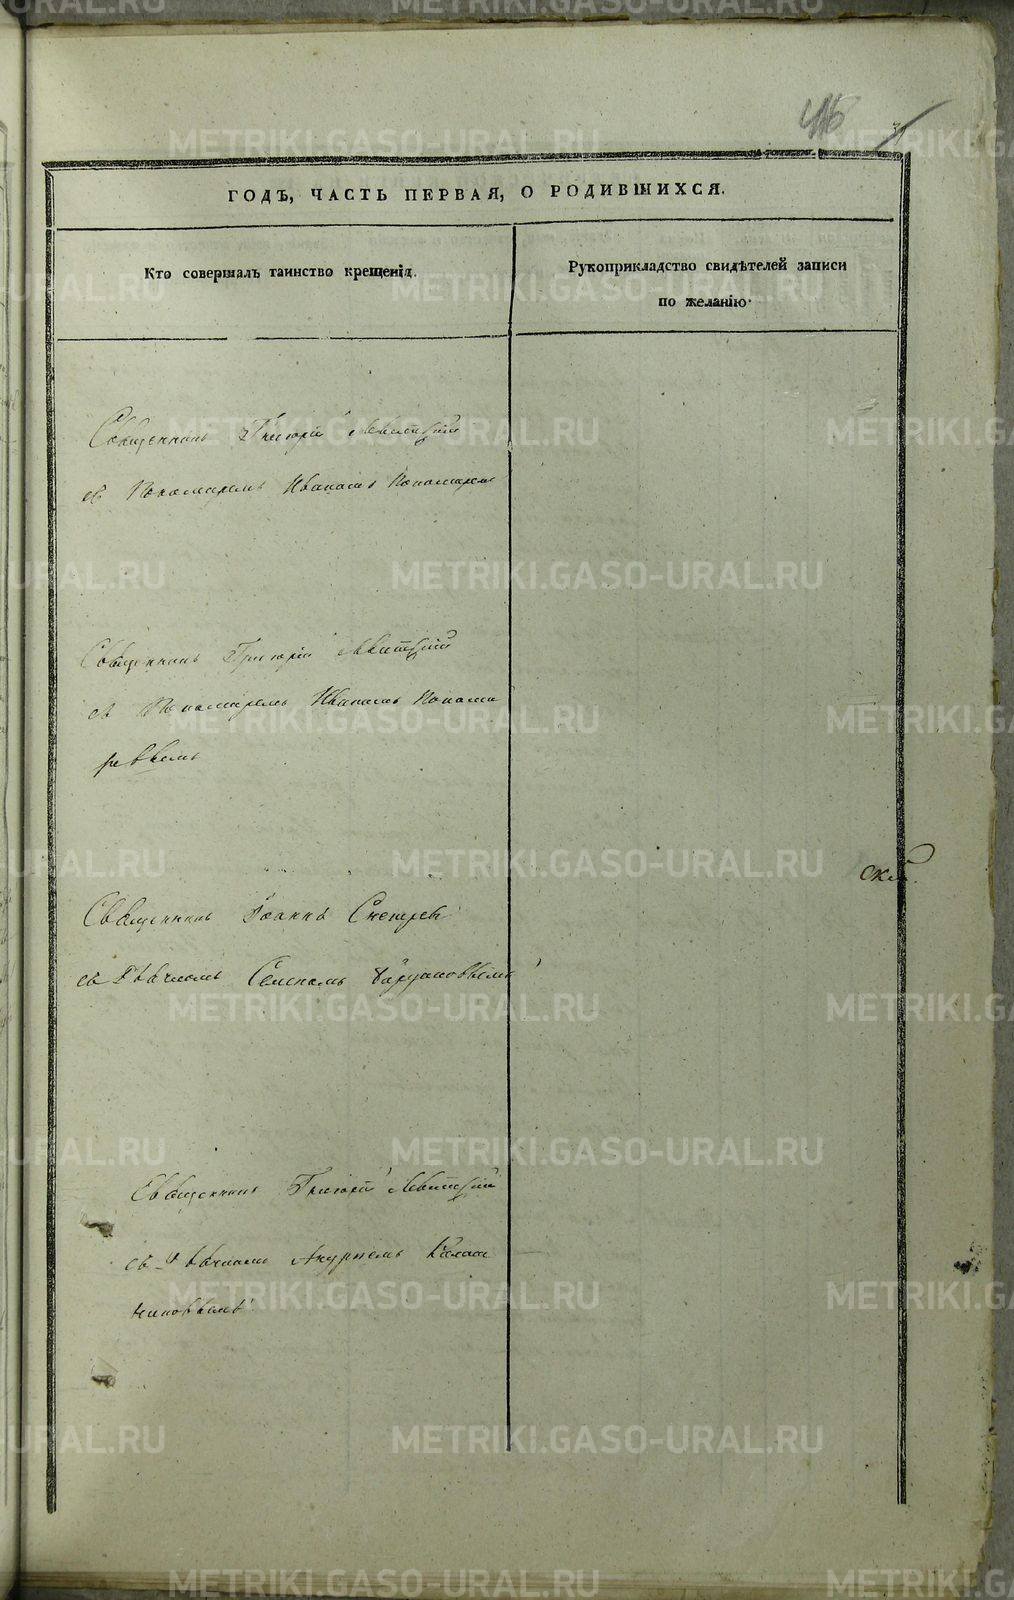 ГОДЪ, ЧАСТЬ ПЕРВАЯ, О РОДИВШИХСЯ.
Кто совершалъ таинство крещенія.
Рукоприкладство свидѣтелей записи
по желанію.
Священникъ Григорій Левитскій
съ Пономаремъ Иваномъ Пономарев
Священникъ Григорій Левитскій
съ Пономаремъ Иваномъ Понома
ревымъ
Священникъ Іоаннъ
съ Дьячкомъ Семеномъ
Священникъ Григорій Левитскій
съ Дьячкомъ Андреемъ Кала
чиковымъ
METRIKI.GASO-URAL.RU